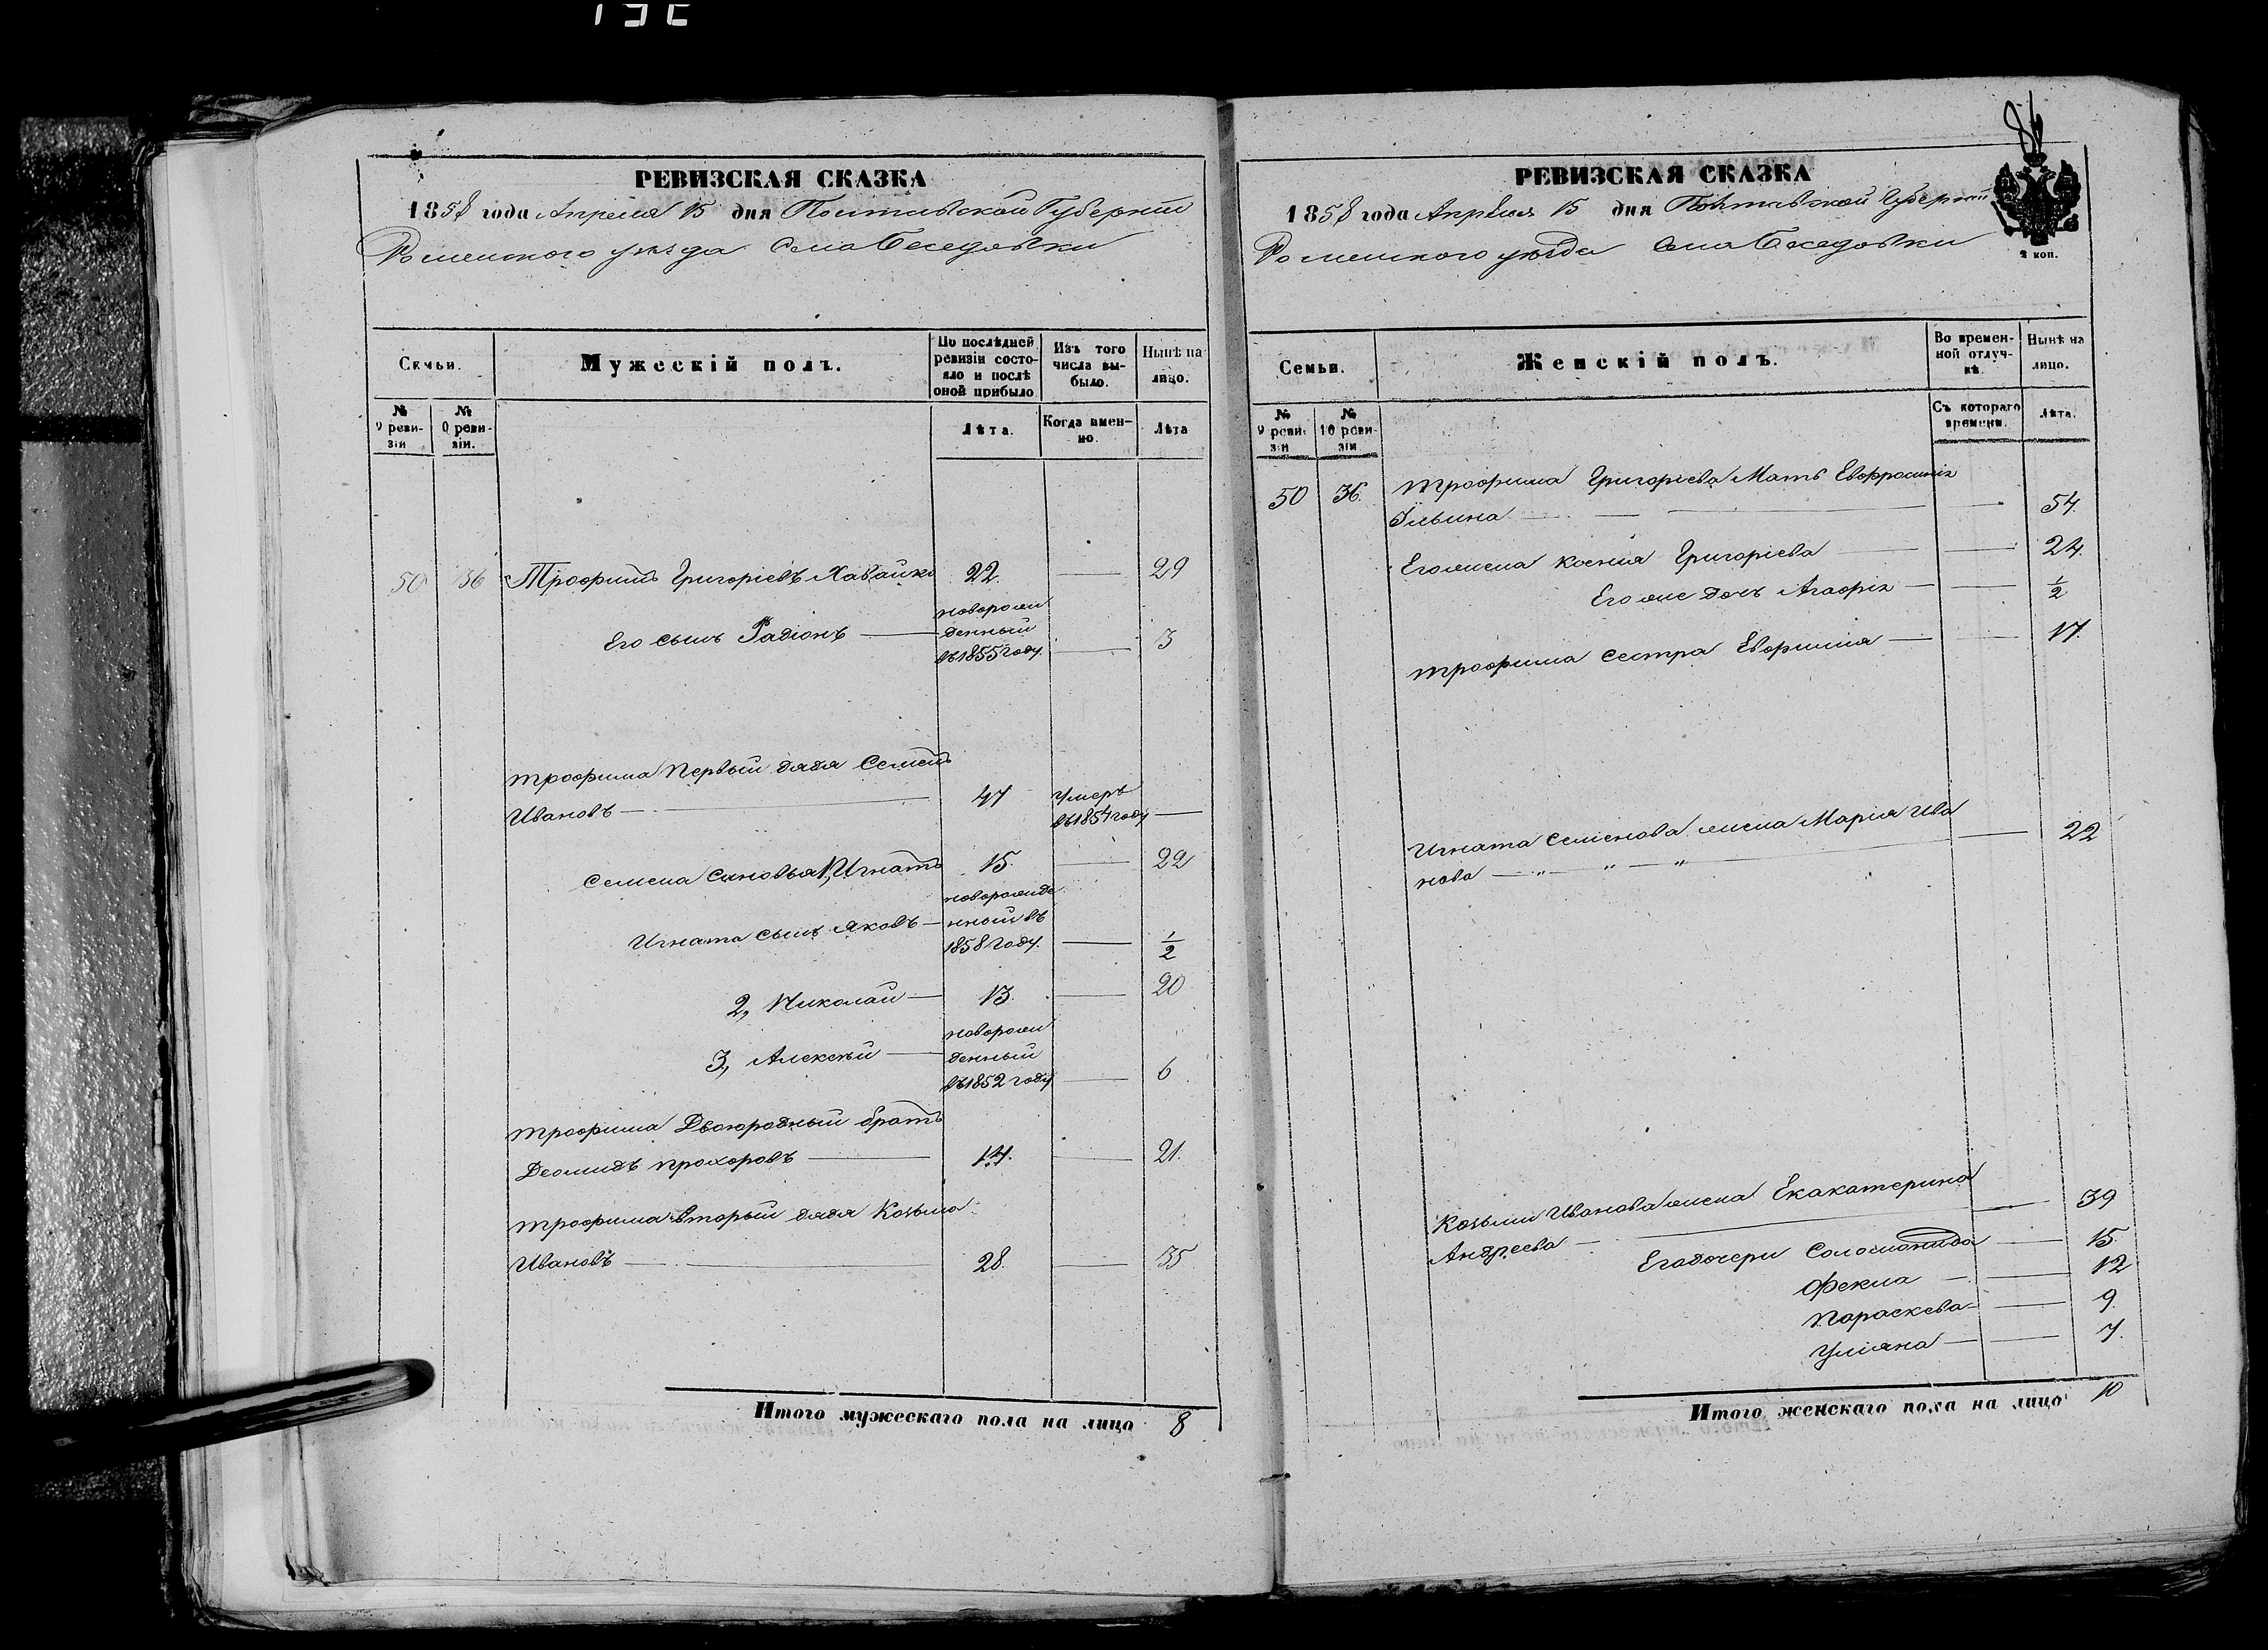 РЕВИЗСКАЯ СКАЗКА
1858 года Апреля 15 дня Полтавской Губерніи
Роменского уѣзда Села Беседовки
Семьи.
Мужескій полъ.
По послѣдней ревизіи состояло и послѣ оной прибыло
Изъ того числа выбыло.
Нынѣ на лицо.
№ 9 ревизіи
№ 0 ревизіи.
Лѣта.
Когда именно.
Лѣта
50 36 Трофимъ Григоріевъ Хавайко 22 29
новорожденный
Его сынъ Радіонъ въ 1855 году. 3
Трофима Первый дядя Семенъ
Ивановъ 47 Умеръ въ 1854 году
Семена Сановья 1, Игнатъ 15. 22
Игната сынъ Яковъ новорожденный въ 1858 году. 1/2
2, Николай 13. 20
3, Алексѣй новорожденный въ 1852 году 6
Трофима Двоюродный братъ
Деомидъ Прохоровъ 14. 21.
Трофима Вторый дядя Козьма
Ивановъ 28. 35
Итого мужескаго пола на лицо 8
86
РЕВИЗСКАЯ СКАЗКА
1858 года Апрѣля 15 дня Полтавской Губерніи
Роменского уѣзда Села Беседовки
2 коп.
Семьи.
Женскій полъ.
Во временной отлучкѣ.
Нынѣ на лицо.
№ 9 ревизіи
№ 10 ревизіи
Съ котораго времени.
Лѣта.
50 36. Трофима Григоріева Мать Евфросинія
Ильина 54.
Его жена Ксенія Григоріева 24.
Его же дочь Агафія 1/2
Трофима сестра Евфимия 17.
Игната Семенова жена Марія Ива
нова 22
Козьми Иванова жена Екакатерина
Андреева 39
Его дочери Соломонида 15.
Фекла 12
Параскева 9.
Уліяна 7.
Итого женскаго пола на лицо 10